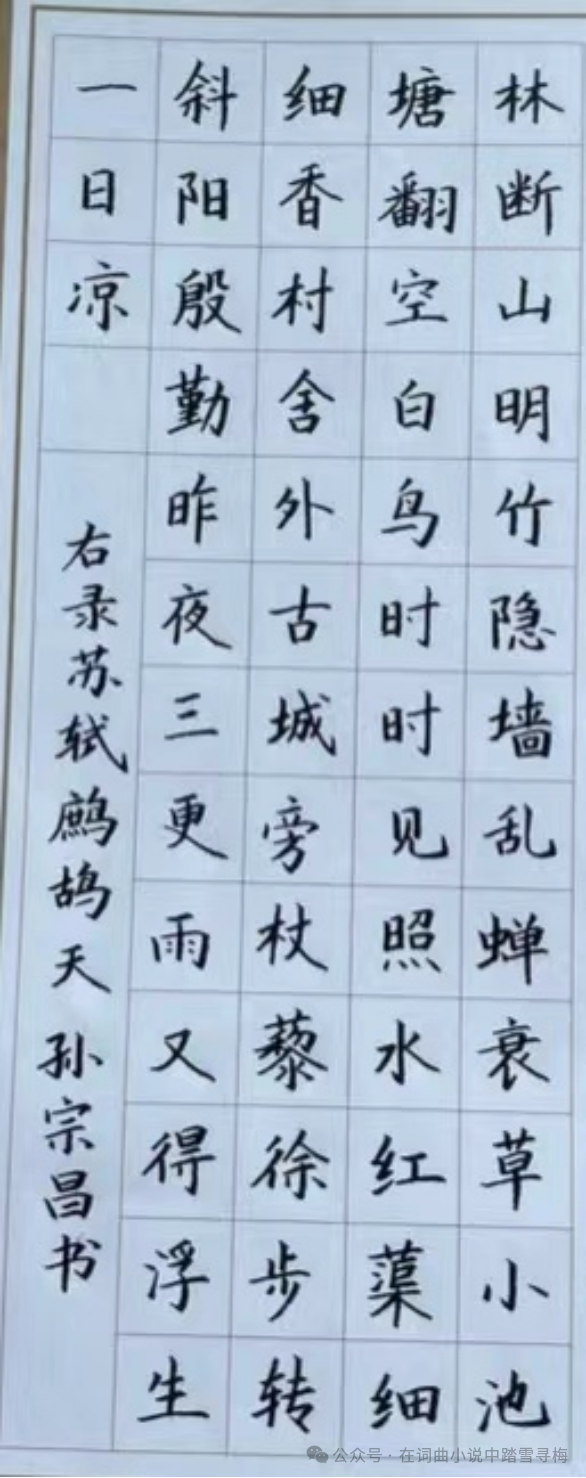 林断山明竹隐墙乱蝉衰草小池
塘翻空白鸟时时见照水红蕖细
细香村舍外古城旁杖藜徐步转
斜阳殷勤昨夜三更雨又得浮生
一日凉
右录苏轼鹧鸪天 孙宗昌书
公众号·在词曲小说中踏雪寻梅